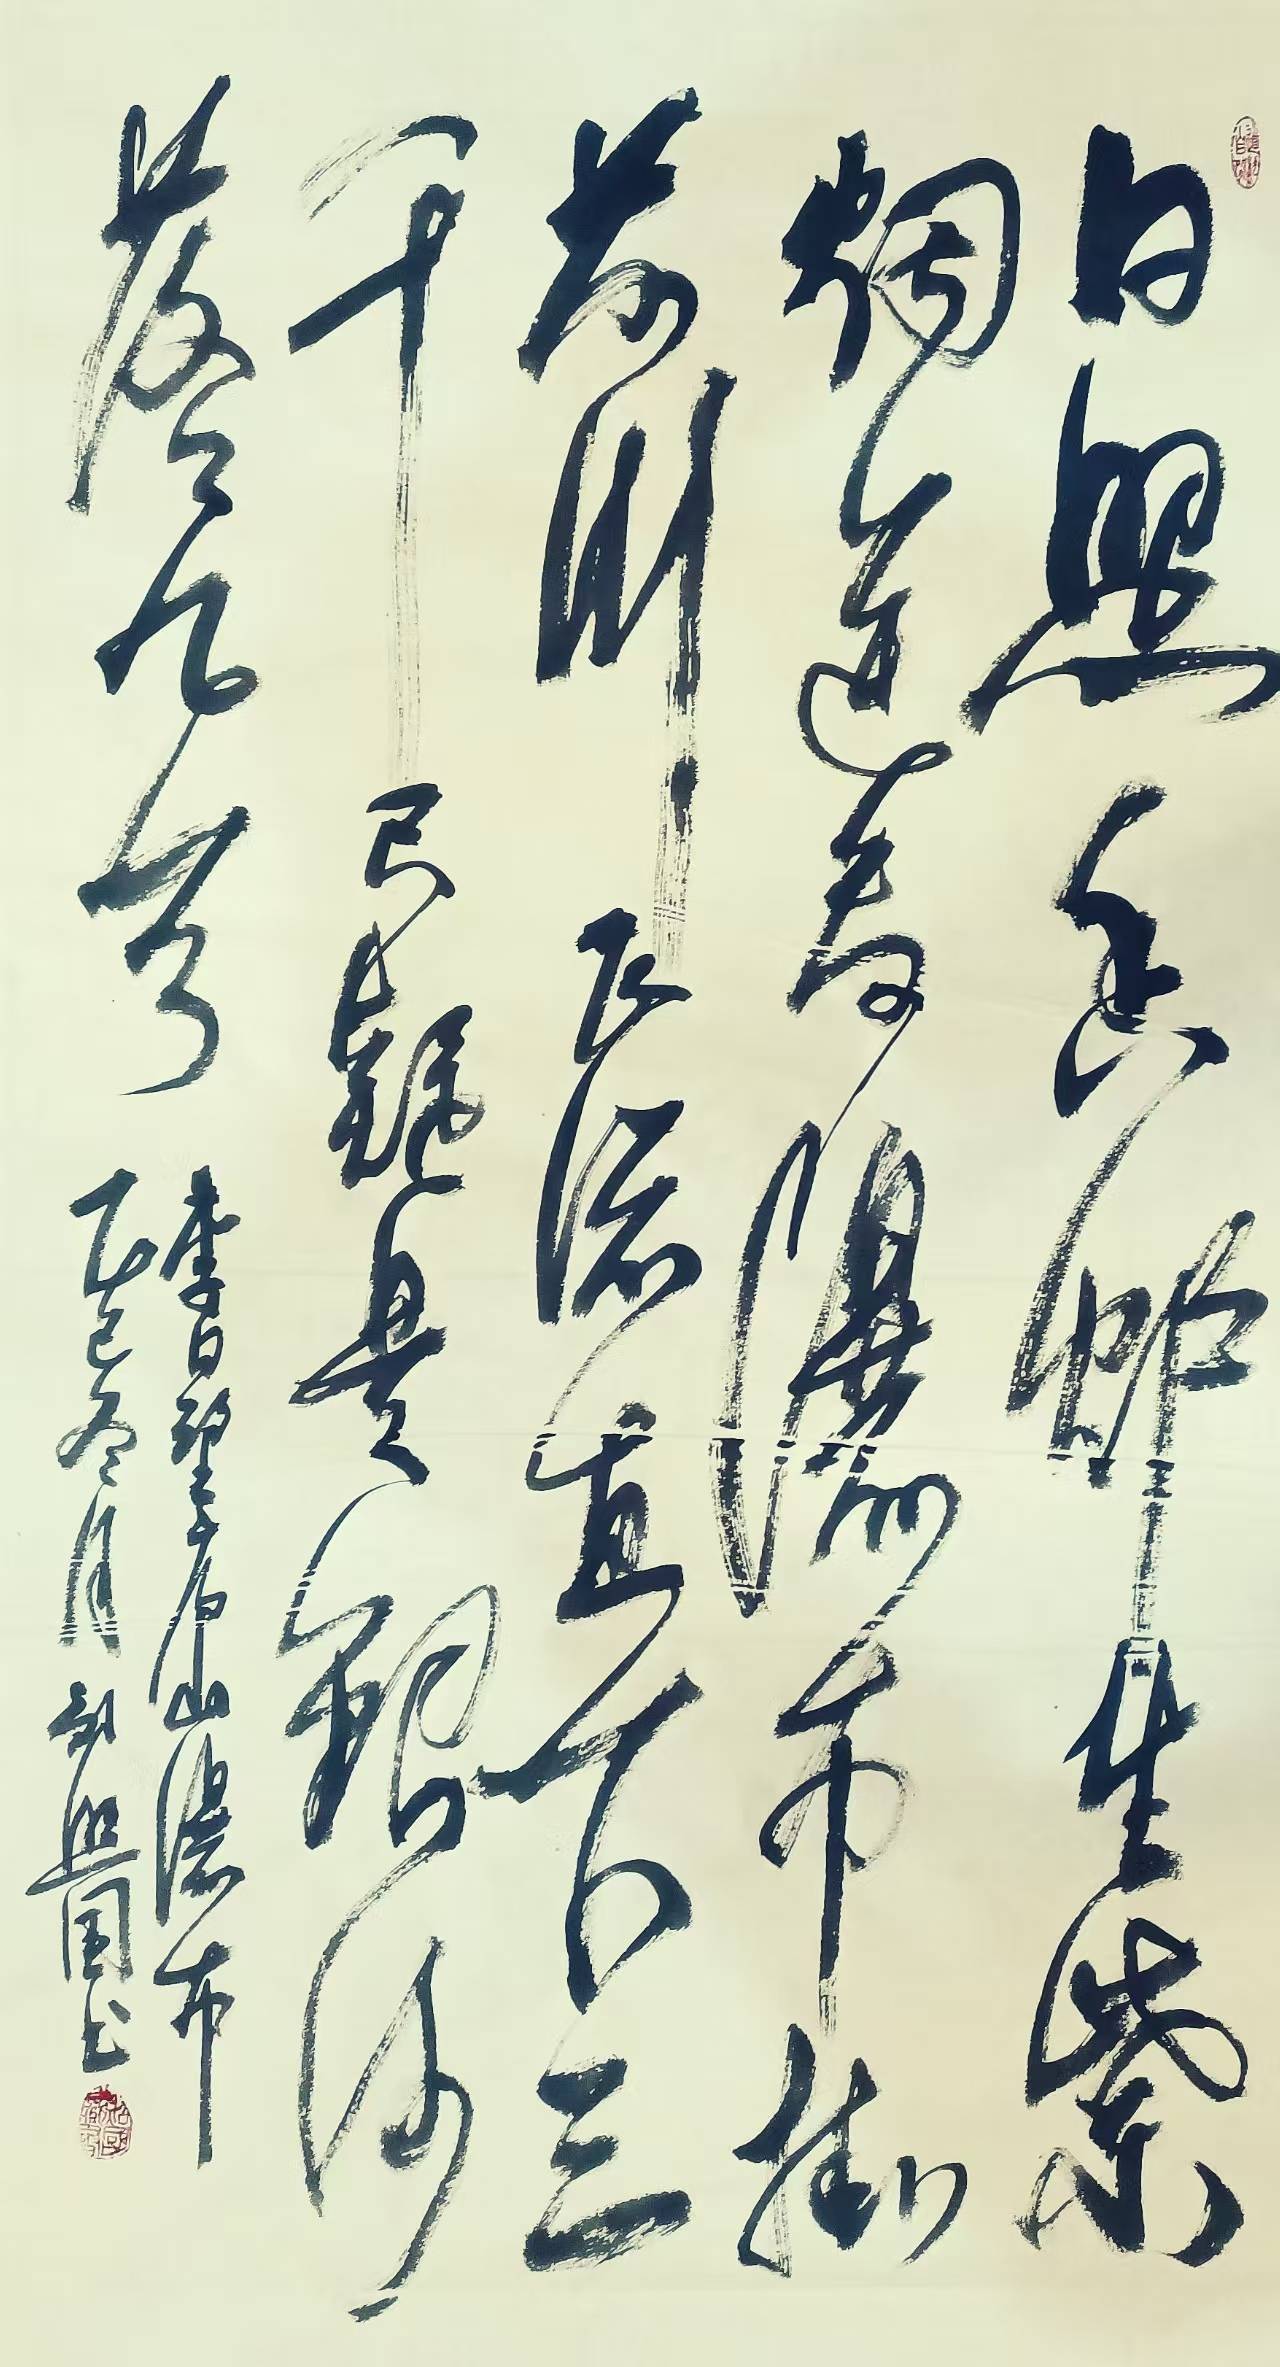 日照香炉生紫
烟遥看瀑布挂
前川飞流直下三
千尺疑是银河
落九天
李白望庐山瀑布
乙巳冬月刘兴国书